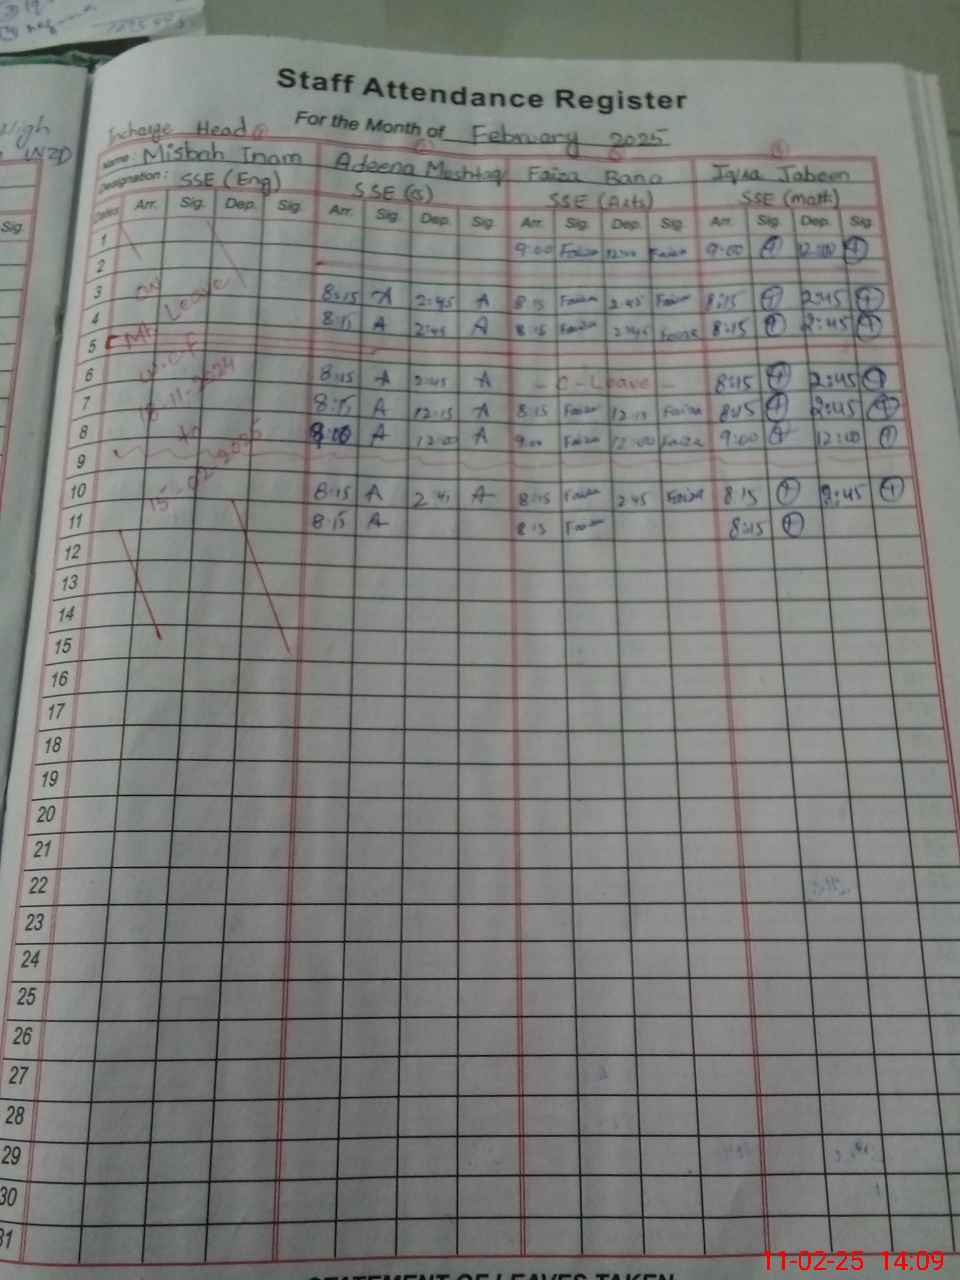 Staff Attendance Register
For the Month of February 2025
Incharge Head
Name: Misbah Inam Adeena Mushtaq Faiza Bano Iqra Jabeen
Designation: SSE (Eng) SSE (S) SSE (Arts) SSE (math)
Dates Arr. Sig. Dep. Sig. Arr. Sig. Dep. Sig. Arr. Sig. Dep. Sig. Arr. Sig. Dep. Sig.
1 9:00 Faiza 12:00 Faiza 9:00 12:00
2
3 On Leave 8:15 A 2:45 A 8:15 Faiza 2:45 Faiza 8:15 2:45
4 8:15 A 2:45 A 8:15 Faiza 2:45 Faiza 8:15 2:45
5
6 w.e.f 8:15 A 2:45 A - C-Leave - 8:15 2:45
7 18-11-2024 8:15 A 12:15 A 8:15 Faiza 12:15 Faiza 8:15 2:45
8 to A 12:00 A 9:00 Faiza 12:00 Faiza 9:00 12:00
9
10 15-02-2025 8:15 A 2:45 A 8:15 Faiza 2:45 Faiza 8:15 2:45
11 8:15 A 8:15 Faiza 8:15
12
13
14
15
16
17
18
19
20
21
22
23
24
25
26
27
28
29
30
31
STATEMENT OF LEAVES TAKEN
11-02-25 14:09